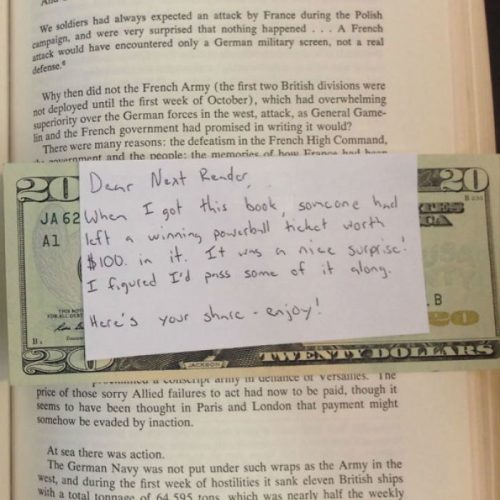 We soldiers had always expected an attack by France during the Polish
campaign, and were very surprised that nothing happened . . . A French
attack would have encountered only a German military screen, not a real
defense.⁶
Why then did not the French Army (the first two British divisions were
not deployed until the first week of October), which had overwhelming
superiority over the German forces in the west, attack, as General Game-
lin and the French government had promised in writing it would?
There were many reasons: the defeatism in the French High Command,
the government and the people; the memories of how France had been
20
20
JA 62
A1
B
Dear Next Reader,
When I got this book, someone had
left a winning powerball ticket worth
$100. in it. It was a nice surprise!
I figured I'd pass some of it along.
Here's your share - enjoy!
JACKSON
TWENTY DOLLARS
20
a conscript army in defiance of Versailles. The
price of those sorry Allied failures to act had now to be paid, though it
seems to have been thought in Paris and London that payment might
somehow be evaded by inaction.
At sea there was action.
The German Navy was not put under such wraps as the Army in the
west, and during the first week of hostilities it sank eleven British ships
with a total tonnage of 64,595 tons, which was nearly half the weekly